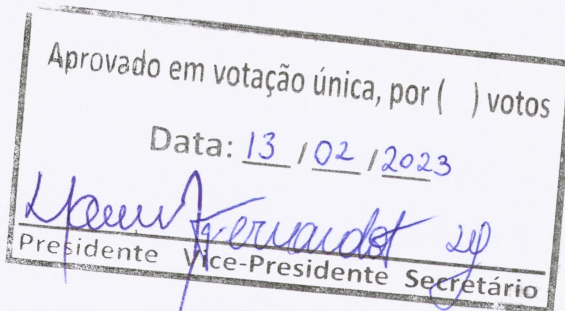 Aprovado em votação única, por (   ) votos
Data: 13 / 02 / 2023
Presidente Vice-Presidente Secretário